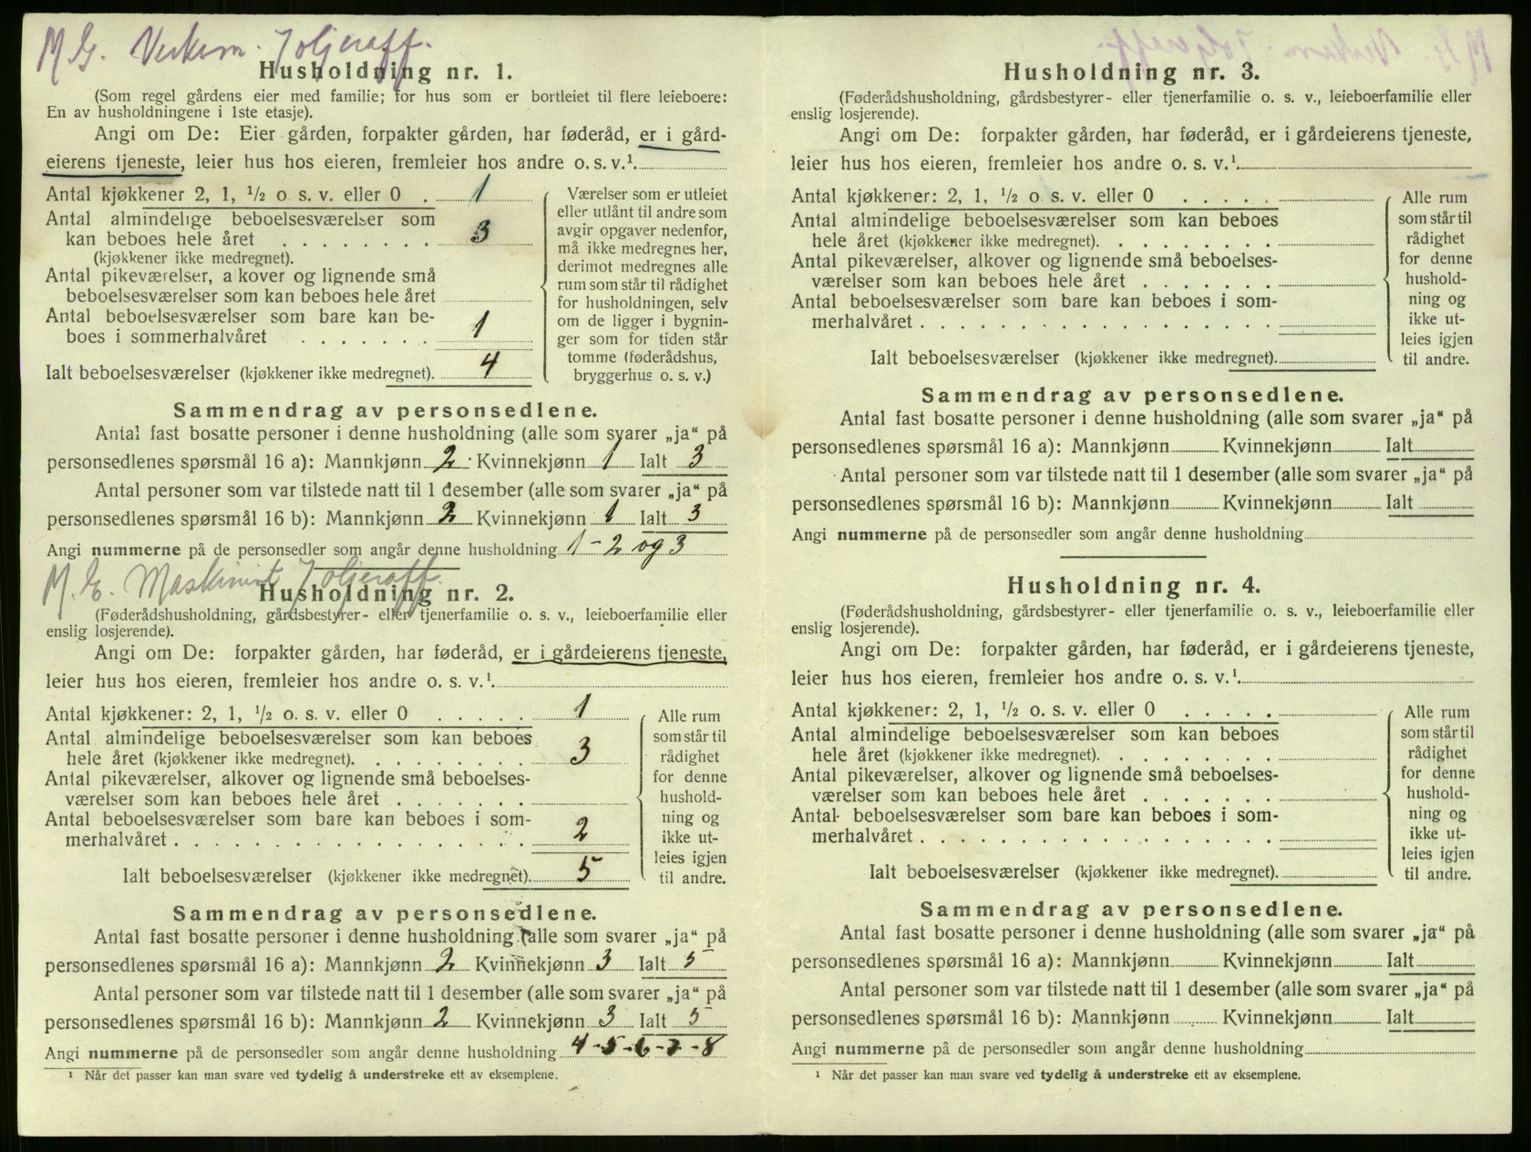 M. G. Verksm. Toljeraff.
Husholdning nr. 1.
(Som regel gårdens eier med familie; for hus som er bortleiet til flere leieboere:
En av husholdningene i 1ste etasje).
Angi om De: Eier gården, forpakter gården, har føderåd, er i gård-
eierens tjeneste, leier hus hos eieren, fremleier hos andre o. s. v.¹.
Antal kjøkkener 2, 1, ½ o s. v. eller 0 . 1
Antal almindelige beboelsesværelser som
kan beboes hele året . . . . . . . . 3
(kjøkkener ikke medregnet).
Antal pikeværelser, alkover og lignende små
beboelsesværelser som kan beboes hele året
Antal beboelsesværelser som bare kan be-
boes i sommerhalvåret . . . . . . . 1
Ialt beboelsesværelser (kjøkkener ikke medregnet). 4
Værelser som er utleiet
eller utlånt til andre som
avgir opgaver nedenfor,
må ikke medregnes her,
derimot medregnes alle
rum som står til rådighet
for husholdningen, selv
om de ligger i bygnin-
ger som for tiden står
tomme (føderådshus,
bryggerhus o. s. v.)
Sammendrag av personsedlene.
Antal fast bosatte personer i denne husholdning (alle som svarer „ja“ på
personsedlenes spørsmål 16 a): Mannkjønn 2 Kvinnekjønn 1 Ialt 3
Antal personer som var tilstede natt til 1 desember (alle som svarer „ja“ på
personsedlenes spørsmål 16 b): Mannkjønn 2 Kvinnekjønn 1 Ialt 3
Angi nummerne på de personsedler som angår denne husholdning 1 - 2 og 3
M. E. Maskinist Toljeraff
Husholdning nr. 2.
(Føderådshusholdning, gårdsbestyrer- eller tjenerfamilie o. s. v., leieboerfamilie eller
enslig losjerende).
Angi om De: forpakter gården, har føderåd, er i gårdeierens tjeneste,
leier hus hos eieren, fremleier hos andre o. s. v.¹.
Antal kjøkkener: 2, 1, ½ o. s. v. eller 0 . . . . . 1
Antal almindelige beboelsesværelser som kan beboes
hele året (kjøkkener ikke medregnet). . . . . . . . . 3
Antal pikeværelser, alkover og lignende små beboelses-
værelser som kan beboes hele året . . . . . . .
Antal beboelsesværelser som bare kan beboes i som-
merhalvåret . . . . . . . . . . . . . . . . . 2
Ialt beboelsesværelser (kjøkkener ikke medregnet). 5
Alle rum
som står til
rådighet
for denne
hushold-
ning og
ikke ut-
leies igjen
til andre.
Sammendrag av personsedlene.
Antal fast bosatte personer i denne husholdning (alle som svarer „ja“ på
personsedlenes spørsmål 16 a): Mannkjønn 2 Kvinnekjønn 3 Ialt 5
Antal personer som var tilstede natt til 1 desember (alle som svarer „ja“ på
personsedlenes spørsmål 16 b): Mannkjønn 2 Kvinnekjønn 3 Ialt 5
Angi nummerne på de personsedler som angår denne husholdning 4 - 5 - 6 - 7 - 8
¹ Når det passer kan man svare ved tydelig å understreke ett av eksemplene.
Husholdning nr. 3.
(Føderådshusholdning, gårdsbestyrer- eller tjenerfamilie o. s. v., leieboerfamilie eller
enslig losjerende).
Angi om De: forpakter gården, har føderåd, er i gårdeierens tjeneste,
leier hus hos eieren, fremleier hos andre o. s. v.¹.
Antal kjøkkener: 2, 1, ½ o. s. v. eller 0 . . . . .
Antal almindelige beboelsesværelser som kan beboes
hele året (kjøkkener ikke medregnet). . . . . . . . .
Antal pikeværelser, alkover og lignende små beboelses-
værelser som kan beboes hele året . . . . . . .
Antal beboelsesværelser som bare kan beboes i som-
merhalvåret . . . . . . . . . . . . . . . . .
Ialt beboelsesværelser (kjøkkener ikke medregnet).
Alle rum
som står til
rådighet
for denne
hushold-
ning og
ikke ut-
leies igjen
til andre.
Sammendrag av personsedlene.
Antal fast bosatte personer i denne husholdning (alle som svarer „ja“ på
personsedlenes spørsmål 16 a): Mannkjønn Kvinnekjønn Ialt
Antal personer som var tilstede natt til 1 desember (alle som svarer „ja“ på
personsedlenes spørsmål 16 b): Mannkjønn Kvinnekjønn Ialt
Angi nummerne på de personsedler som angår denne husholdning
Husholdning nr. 4.
(Føderådshusholdning, gårdsbestyrer- eller tjenerfamilie o. s. v., leieboerfamilie eller
enslig losjerende).
Angi om De: forpakter gården, har føderåd, er i gårdeierens tjeneste,
leier hus hos eieren, fremleier hos andre o. s. v.¹.
Antal kjøkkener: 2, 1, ½ o. s. v. eller 0 . . . . .
Antal almindelige beboelsesværelser som kan beboes
hele året (kjøkkener ikke medregnet). . . . . . . . .
Antal pikeværelser, alkover og lignende små beboelses-
værelser som kan beboes hele året . . . . . . .
Antal beboelsesværelser som bare kan beboes i som-
merhalvåret . . . . . . . . . . . . . . . . .
Ialt beboelsesværelser (kjøkkener ikke medregnet).
Alle rum
som står til
rådighet
for denne
hushold-
ning og
ikke ut-
leies igjen
til andre.
Sammendrag av personsedlene.
Antal fast bosatte personer i denne husholdning (alle som svarer „ja“ på
personsedlenes spørsmål 16 a): Mannkjønn Kvinnekjønn Ialt
Antal personer som var tilstede natt til 1 desember (alle som svarer „ja“ på
personsedlenes spørsmål 16 b): Mannkjønn Kvinnekjønn Ialt
Angi nummerne på de personsedler som angår denne husholdning
¹ Når det passer kan man svare ved tydelig å understreke ett av eksemplene.